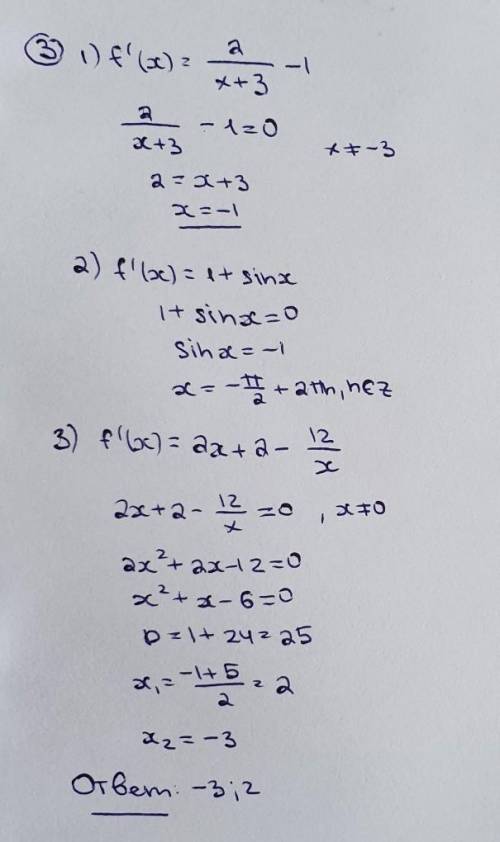 ③ 1) f'(x) = 2/(x+3) - 1
2/(x+3) - 1 = 0   x ≠ -3
2 = x+3
x = -1
2) f'(x) = 1 + sinx
1 + sinx = 0
sinx = -1
x = -π/2 + 2πn, n∈Z
3) f'(x) = 2x + 2 - 12/x
2x + 2 - 12/x = 0, x ≠ 0
2x² + 2x - 12 = 0
x² + x - 6 = 0
D = 1 + 24 = 25
x₁ = (-1+5)/2 = 2
x₂ = -3
Ответ: -3; 2